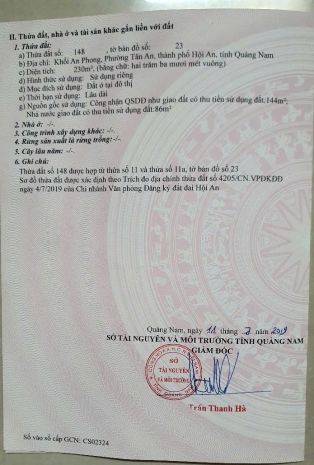 II. Thửa đất, nhà ở và tài sản khác gắn liền với đất
1. Thửa đất:
a) Thửa đất số: 148 , tờ bản đồ số: 23
b) Địa chỉ: Khối An Phong, Phường Tân An, thành phố Hội An, tỉnh Quảng Nam
c) Diện tích: 230m², (bằng chữ: hai trăm ba mươi mét vuông)
d) Hình thức sử dụng: Sử dụng riêng
đ) Mục đích sử dụng: Đất ở tại đô thị
e) Thời hạn sử dụng: Lâu dài
g) Nguồn gốc sử dụng: Công nhận QSDĐ như giao đất có thu tiền sử dụng đất:144m²;
Nhà nước giao đất có thu tiền sử dụng đất:86m²
2. Nhà ở: -/-.
3. Công trình xây dựng khác: -/-.
4. Rừng sản xuất là rừng trồng: -/-.
5. Cây lâu năm: -/-.
6. Ghi chú:
Thửa đất số 148 được hợp từ thửa số 11 và thửa số 11a, tờ bản đồ số 23
Sơ đồ thửa đất được xác định theo Trích đo địa chính thửa đất số 4205/CN.VPĐKĐĐ
ngày 4/7/2019 của Chi nhánh Văn phòng Đăng ký đất đai Hội An
Quảng Nam, ngày 11 tháng 7 năm 2019
SỞ TÀI NGUYÊN VÀ MÔI TRƯỜNG TỈNH QUẢNG NAM
GIÁM ĐỐC
SỞ
TÀI NGUYÊN
VÀ MÔI TRƯỜNG
Trần Thanh Hà
Số vào sổ cấp GCN: CS02324